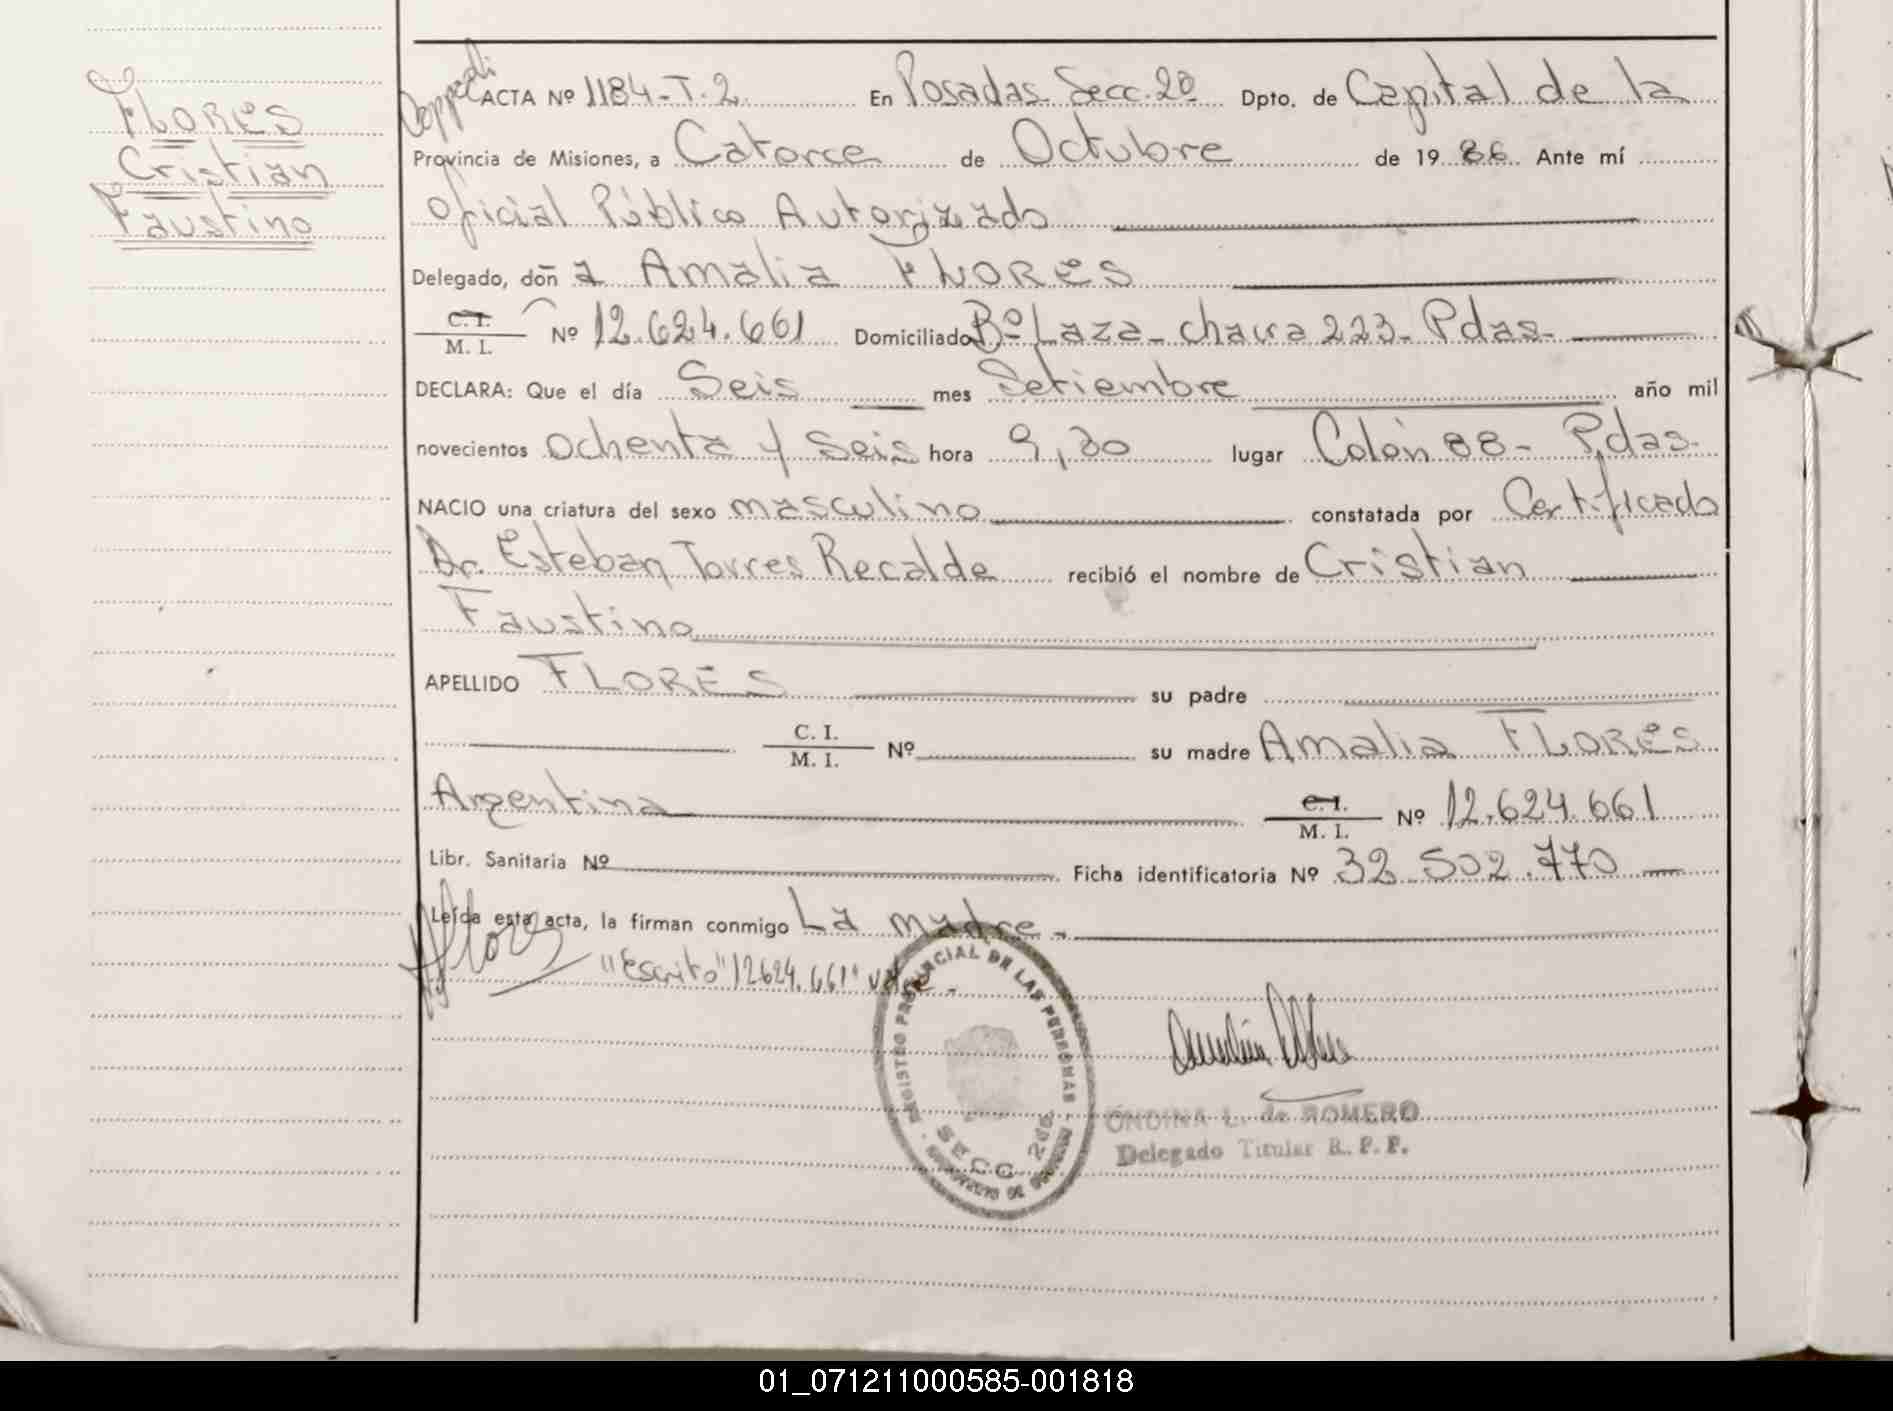 FLORES
Cristian
Faustino
ACTA Nº 1184-T.2 En Posadas Secc. 2º Dpto. de Capital de la
Provincia de Misiones, a Catorce de Octubre de 19 86 Ante mí
Oficial Público Autorizado
Delegado, doña Amalia FLORES
C. I. / M. I. Nº 12.624.661 Domiciliado Bº Laza- chacra 223- Pdas-
DECLARA: Que el día Seis mes Setiembre año mil
novecientos ochenta y Seis hora 9,30 lugar Colón 88- Pdas-
NACIO una criatura del sexo masculino constatada por Certificado
Dr. Esteban Torres Recalde recibió el nombre de Cristian
Faustino
APELLIDO FLORES su padre
C. I. / M. I. Nº su madre Amalia FLORES
Argentina C. I. / M. I. Nº 12.624.661
Libr. Sanitaria Nº Ficha identificatoria Nº 32.502.770
Leída esta acta, la firman conmigo La madre-
AFlores "Escrito" 12624.661" vale-
REGISTRO PROVINCIAL DE LAS PERSONAS
SECC. 2da.
ONDINA L. de ROMERO
Delegado Titular R. P. P.
01_071211000585-001818